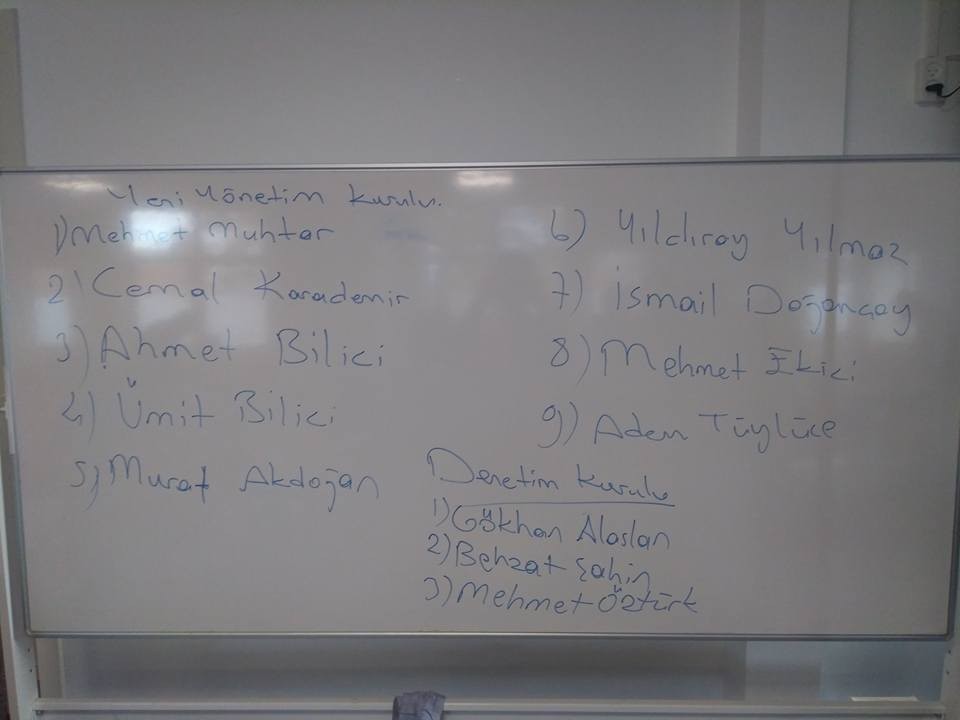 Yeni Yönetim Kurulu.
1) Mehmet Muhtar
2) Cemal Karademir
3) Ahmet Bilici
4) Ümit Bilici
5) Murat Akdoğan
6) Yıldıray Yılmaz
7) İsmail Doğançay
8) Mehmet Ekici
9) Adem Tüylüce
Denetim Kurulu
1) Gökhan Alaslan
2) Behzat Şahin
3) Mehmet Öztürk